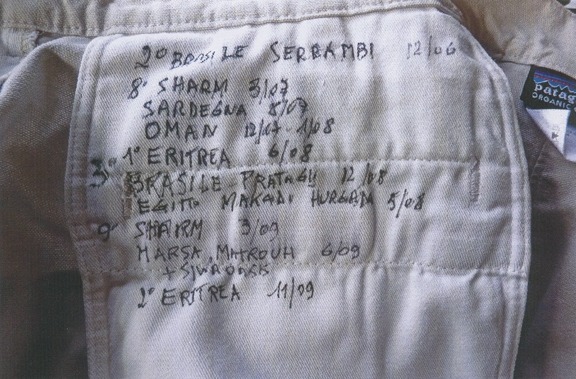 2° BRASILE SERRAMBI 12/06
8° SHARM 3/07
SARDEGNA 8/07
OMAN 12/07-1/08
1° ERITREA 6/08
3° BRASILE PRATAGY 12/08
EGITTO MAKADI HURGADA 5/08
9° SHARM 3/09
MARSA MATROUH 6/09
+ SIWA
2° ERITREA 11/09
patag
ORGANIC